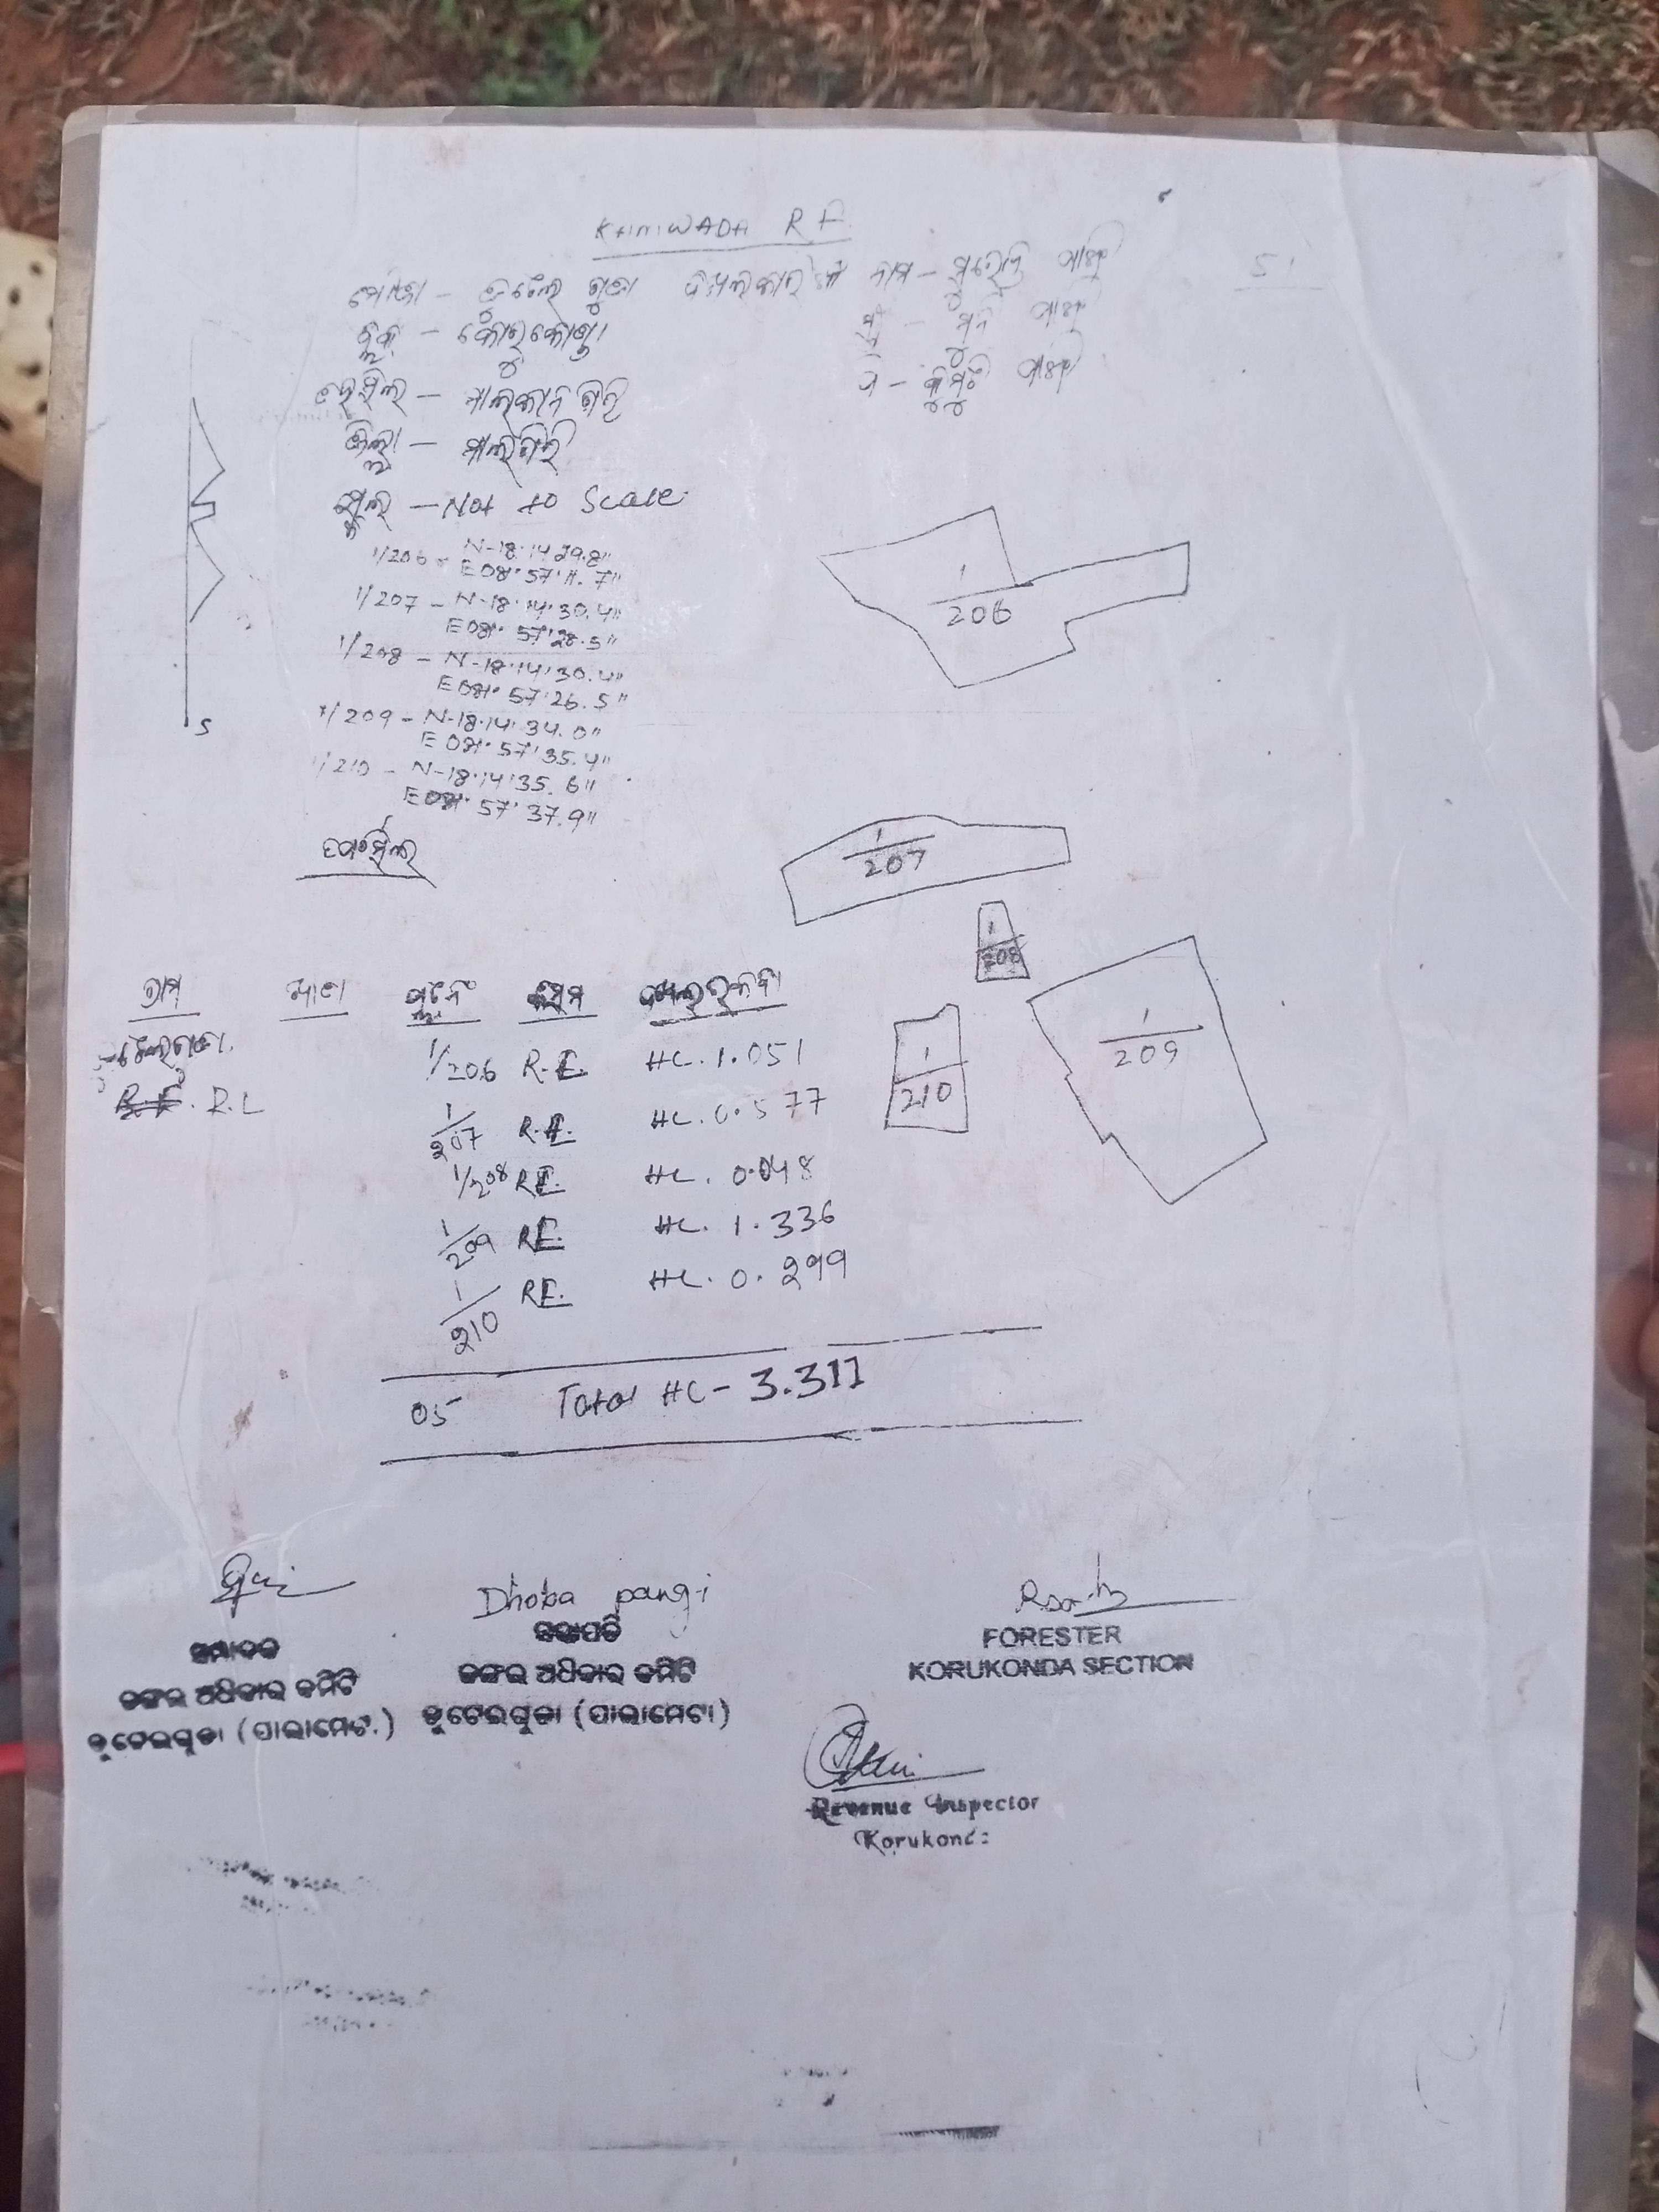 KAMWADA R F
51
ମୌଜା - ତୁଟେଲ ଗୁଡା ଦଖଲକାରଙ୍କ ନାମ -
ବ୍ଲକ - କୋରୁକୋଣ୍ଡା
ତହସିଲ - ମାଲକାନଗିରି
ଜିଲ୍ଲା - ମାଲଗିରି
ସ୍କେଲ - Not to Scale
1/206 - N-18°14'29.8"
E 081° 57' 11.7"
1/207 - N-18°14'30.4"
E 081° 57'28.5"
1/208 - N-18°14'30.4"
E 081° 57'26.5"
1/209 - N-18°14'34.0"
E 081° 57'35.4"
1/210 - N-18°14'35.6"
E 081° 57'37.9"
S
1/206
1/207
1/208
1/209
1/210
ଗ୍ରାମ ଖାତା ପ୍ଲଟନଂ କିସମ ଦଖଲରକବା
1/206 R.F. HC. 1.051
R.F. R.L
1/207 R.F. HC. 0.577
1/208 R.F. HC. 0.048
1/209 R.F. HC. 1.336
1/210 R.F. HC. 0.299
05 Total HC - 3.311
Dhoba pangi
ସମ୍ପାଦକ
ଜଙ୍ଗଲ ଅଧିକାର କମିଟି
ତୁଟେଇଗୁଡା (ପାଲାମେଟା)
ସଭାପତି
ଜଙ୍ଗଲ ଅଧିକାର କମିଟି
ତୁଟେଇଗୁଡା (ପାଲାମେଟା)
FORESTER
KORUKONDA SECTION
Revenue Inspector
Korukonda